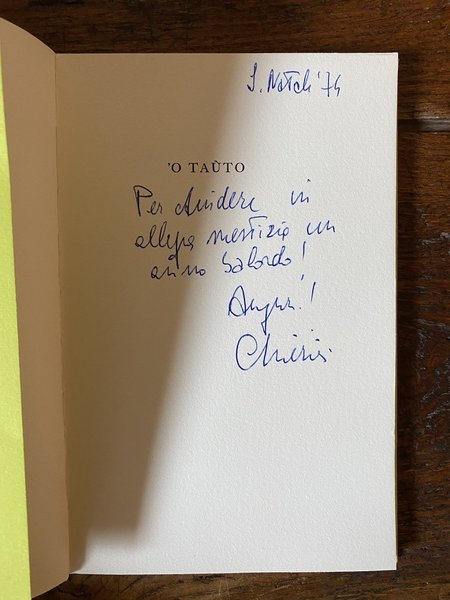 S. Natale '74
'O TAÙTO
Per chiudere in
allegra mestizia un
anno balordo!
Auguri!